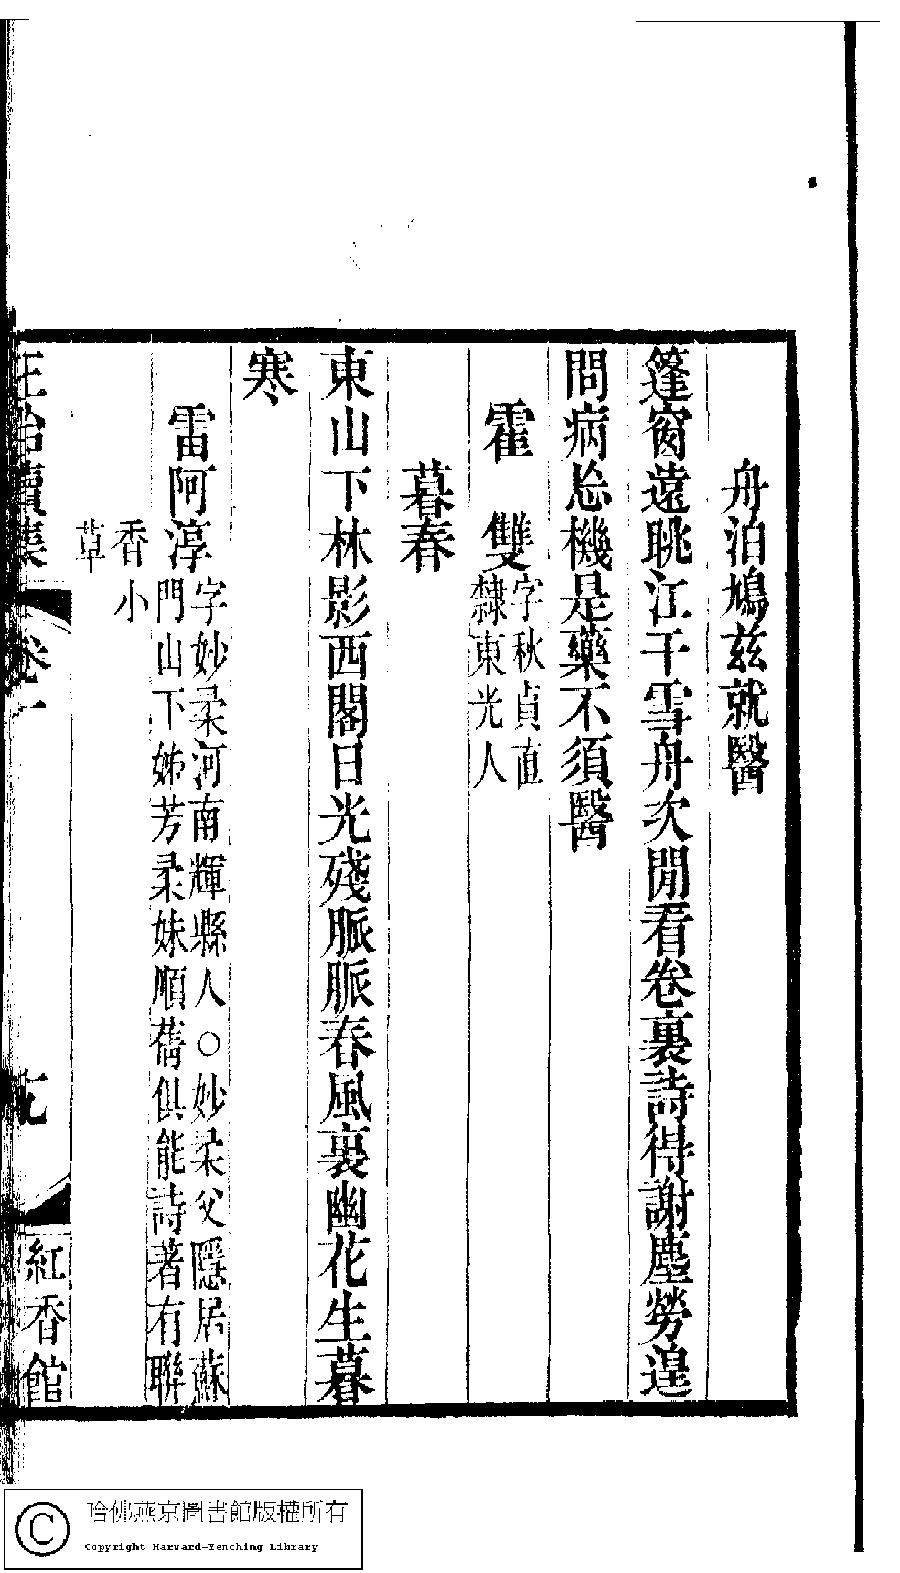 舟泊鳩茲就醫
篷窗遠眺江干雪舟次閒看卷裏詩得謝塵勞遑
問病忘機是藥不須醫
霍　雙字秋貞直
隸東光人
暮春
東山下林影西閣日光殘脈脈春風裏幽花生暮
寒
雷阿淳字妙柔河南輝縣人○妙柔父隱居蘇
門山下姊芳柔妹順蒨俱能詩著有聯
香小
草
正始續集
卷一
紅香館
哈佛燕京圖書館版權所有
Copyright Harvard-Yenching Library